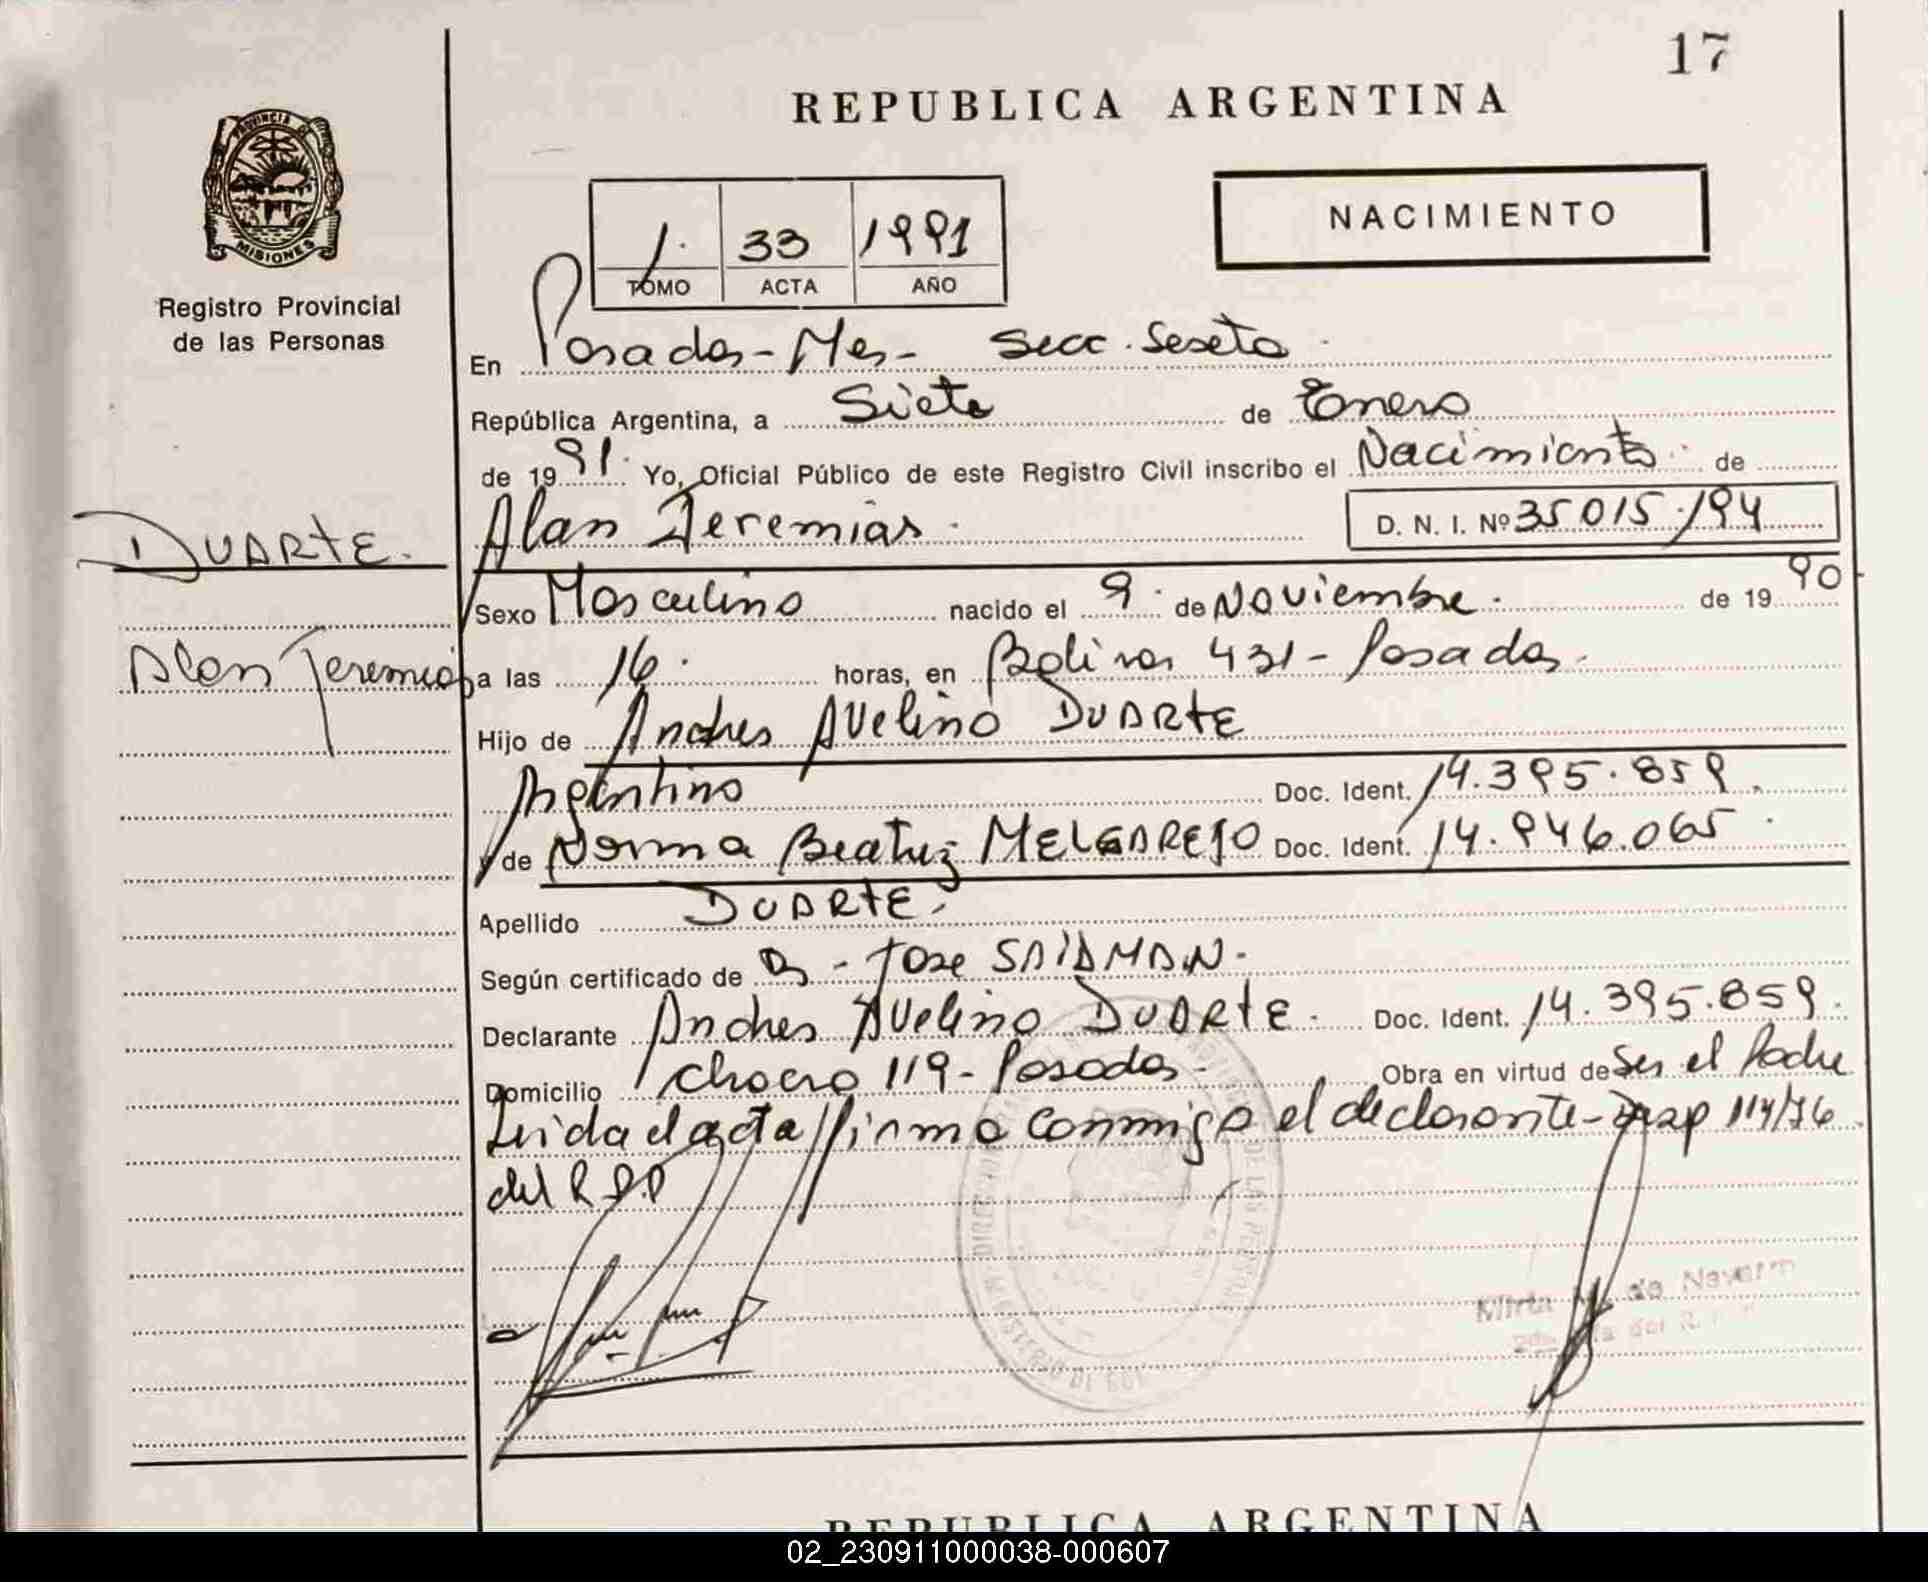 17
REPUBLICA ARGENTINA
PROVINCIA DE
MISIONES
Registro Provincial
de las Personas
1. 33 1991
TOMO ACTA AÑO
NACIMIENTO
En Posadas - Mes - Secc. Sexeta
República Argentina, a Siete de Enero
de 1991. Yo, Oficial Público de este Registro Civil inscribo el Nacimiento de
Alan Jeremias. D. N. I. Nº 35 015.194
DUARTE.
Sexo Masculino nacido el 9 de Noviembre. de 1990
Alan Jeremias a las 16. horas, en Bolivar 431 - Posadas.
Hijo de Andres Avelino DUARTE
Argentino Doc. Ident. 14.395.859.
y de Norma Beatriz MELGAREJO Doc. Ident. 14.946.065.
Apellido DUARTE.
Según certificado de Dr - Jose SAIDMAN.
Declarante Andres Avelino DUARTE. Doc. Ident. 14.395.859.
Domicilio Chaco 119 - Posadas. Obra en virtud de Ser el Padre
Leida el acta firma conmigo el declarante - Disp 114/76
del R.P.P
Mirta de Navarro
REPUBLICA ARGENTINA
02_230911000038-000607